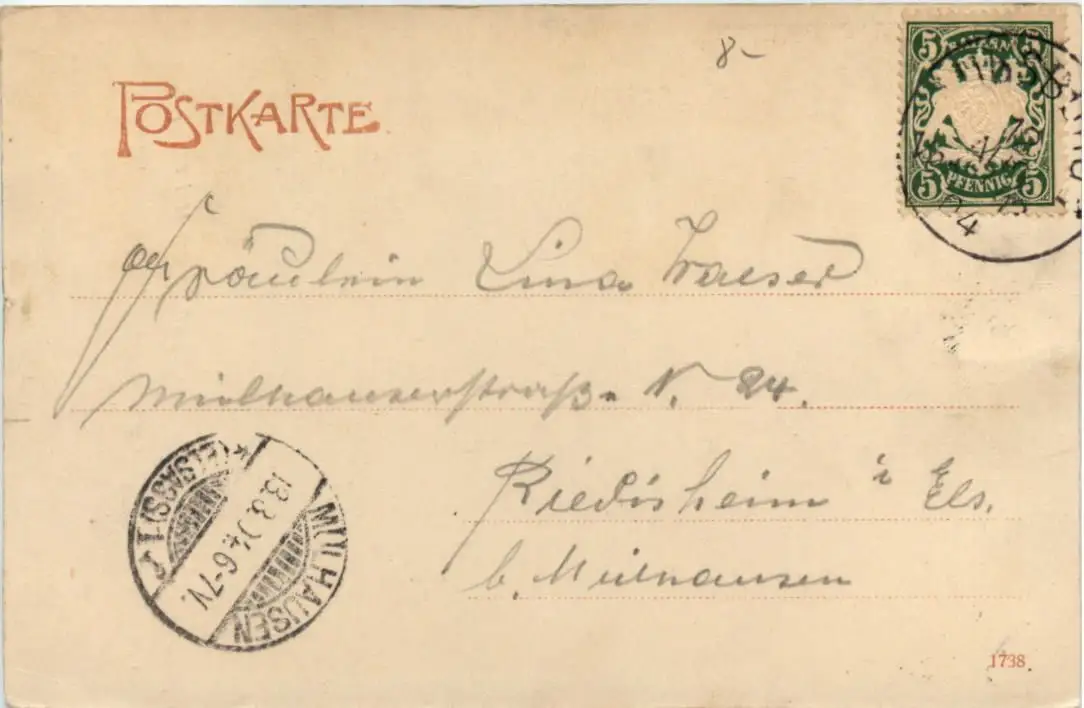 8-
POSTKARTE
5 BAYERN 5
5 PFENNIG 5
Fräulein Lina Waeser
Mülhauserstraße N. 24.
Riedisheim i Els.
b. Mülhausen
MÜLHAUSEN
* (ELSASS) 1 r
13.3.04.6-7V.
1738